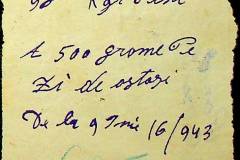 A 500 grame Pe
Zi de ostasi
De la 9 Iunie 16/943